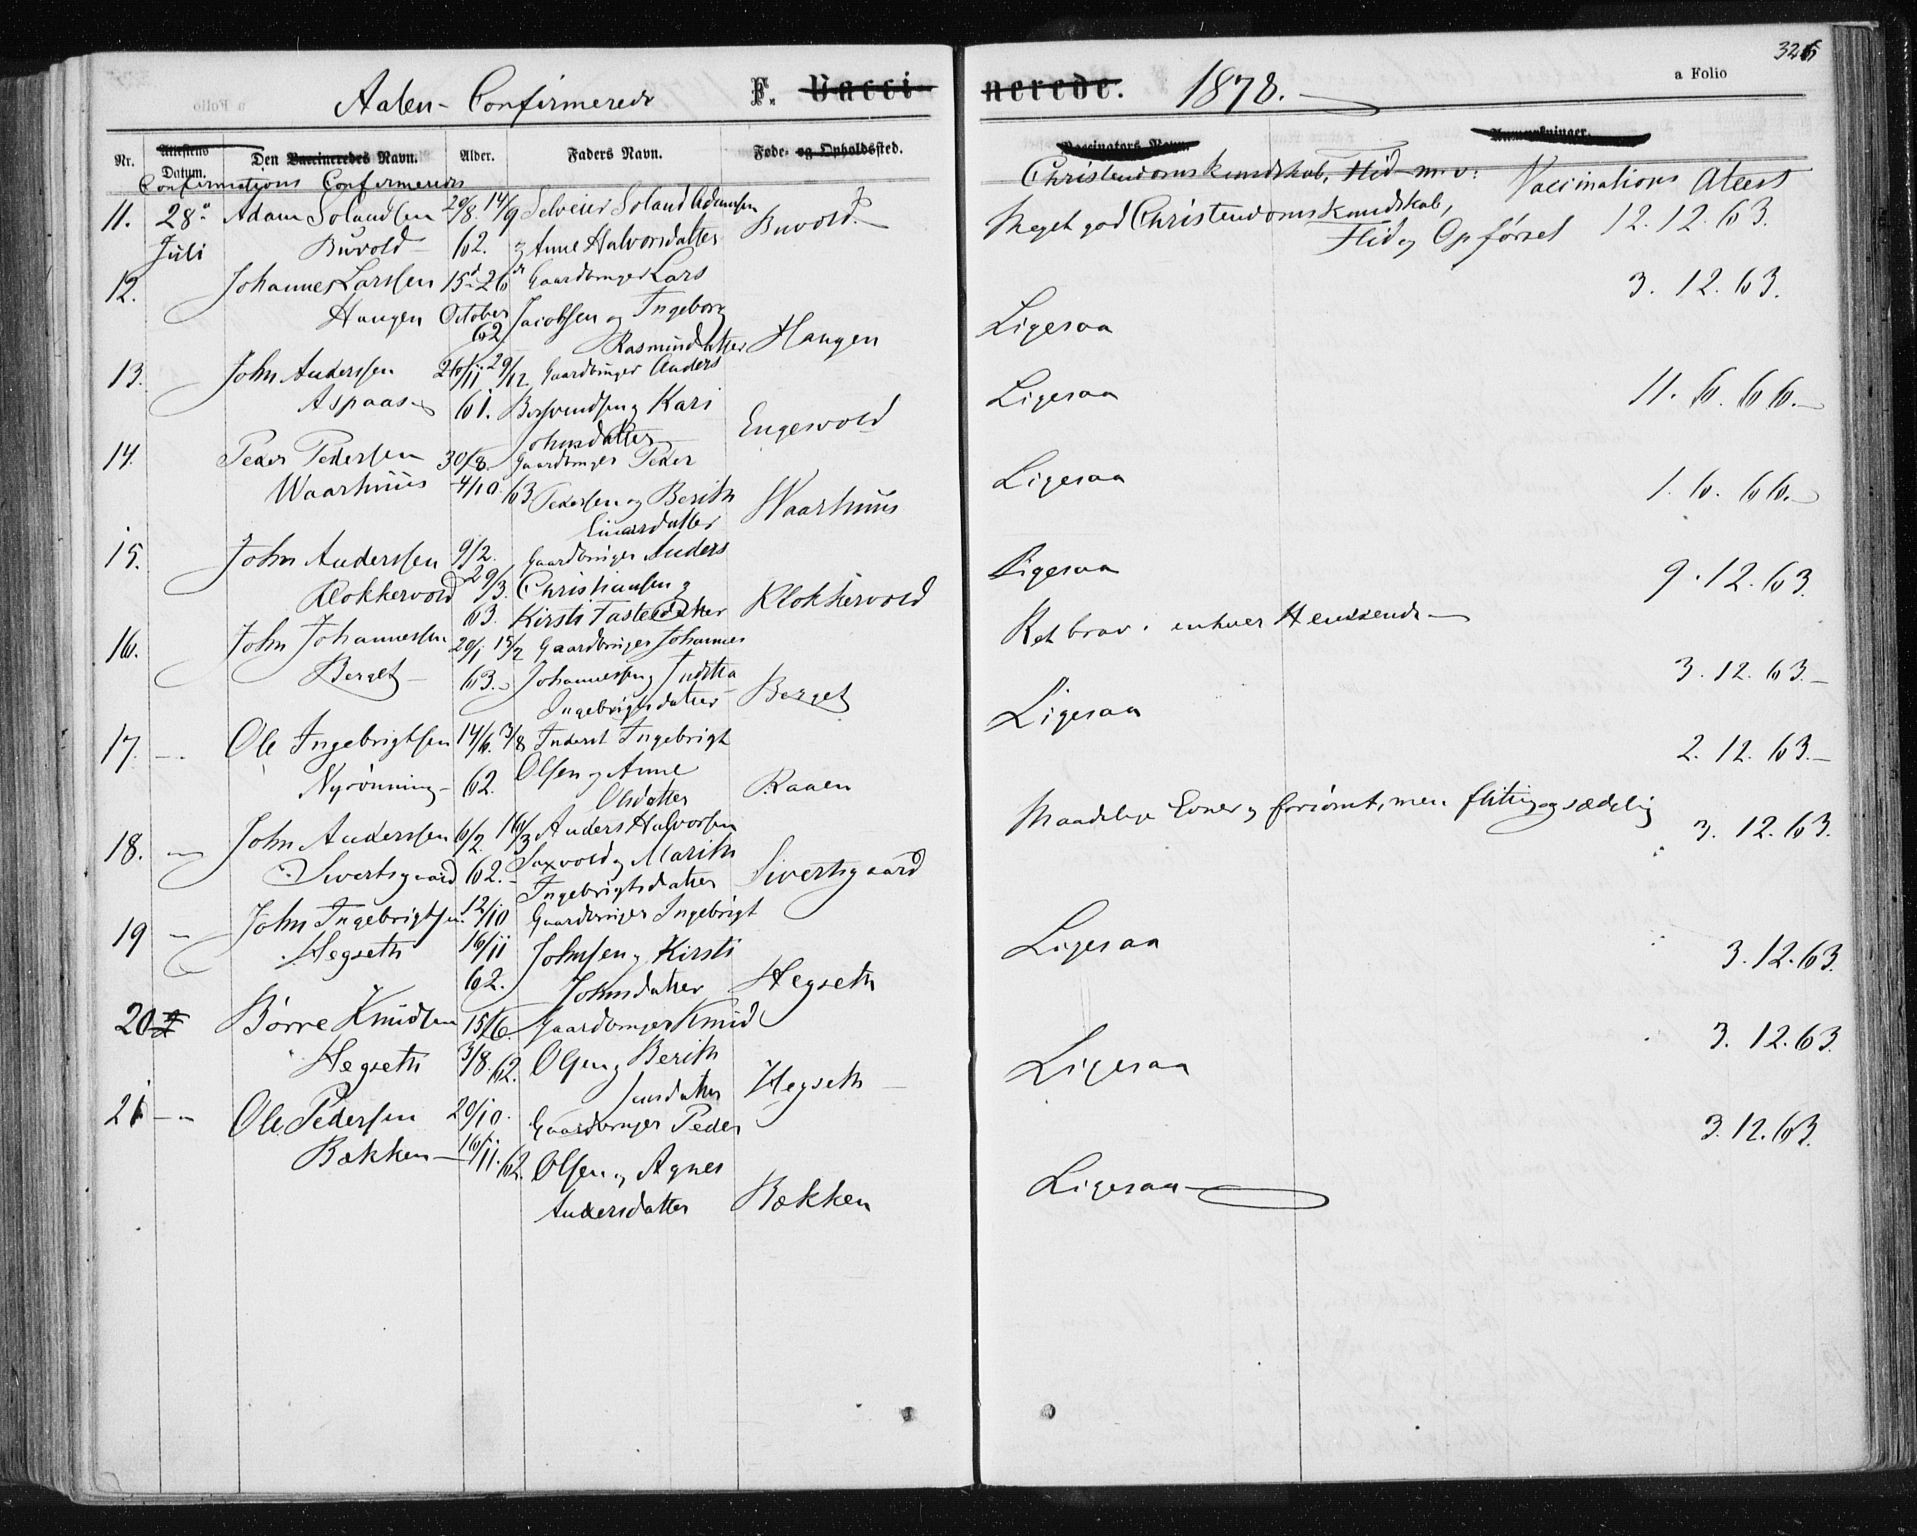 326
a Folio
Aalen - Confirmerede F. Vaccinerede. 1878.
Nr. Attestens Datum. Den Vaccineredes Navn. Alder. Faders Navn. Føde- og Opholdssted. Vaccinators Navn. Anmærkninger.
Confirmations Confirmeredes Christendomskundskab, Flid m. v: Vaccinations Attest
11. 28de Adam Solandsen 20/8. 14/9 Selveier Soland Adamsen Buvold. Meget god Christendomskundskab, 12.12.63.
Juli Buvold 62. og Anne Halvorsdatter Flid og Opførsel
12. Johannes Larssen 15de 26de Gaardbruger Lars 3. 12. 63.
Haugen October Jacobsen og Ingeborg Ligesaa
62 Rasmusdatter Haugen
13. John Anderssen 26/11 29/12 Gaardbruger Anders Ligesaa 11. 6. 66.
Aspaas 61. Kari
Johnsdatter Engesvold
14. Peder Pedersen 30/8. Gaardbruger Peder Ligesaa 1. 6. 66.
Waarhuus 4/10 63 Pedersen og Berith Waarhuus
Einarsdatter
15. John Anderssen 9/2. Gaardbruger Anders Ligesaa 9. 12. 63.
Klokkervold 29/3. Christiansen og Klokkervold
63. Kirsti
16. John Johannessen 20/1 15/2 Gaardbruger Johannes Ret brav i enhver Henseende
Berget 63. Johannessen og 3. 12. 63.
Ingebrigtsdatter Berget
17. Ole Ingebrigtsen 14/6. 3/8 Inderst Ingebrigt Ligesaa
Nyrønning 62. Olsen og Anne Raaen 2. 12. 63.
Olsdatter
18. John Anderssen 6/2. 16/3 Anders Halvorsen Maadelige Evner og forsømt, men flittig og sædelig 3. 12. 63.
Sivertsgaard 62. og Marith Sivertsgaard
Ingebrigtsdatter
19 John Ingebrigtsen 12/10 Gaardbruger Ingebrigt Ligesaa
Hegseth 16/11 Johnsen og Kirsti 3. 12. 63.
62. Johnsdatter Hegseth
20 Børre Knudsen 15/6. Gaardbruger Knud Ligesaa 3. 12. 63.
Hegseth 3/8. 62. Olsen og Berith Hegseth
Jensdatter
21 Ole Pedersen 20/10. Gaardbruger Peder 3. 12. 63.
Bakken 16/11. 62. Olsen og Agnes Ligesaa
Andersdatter Bakken